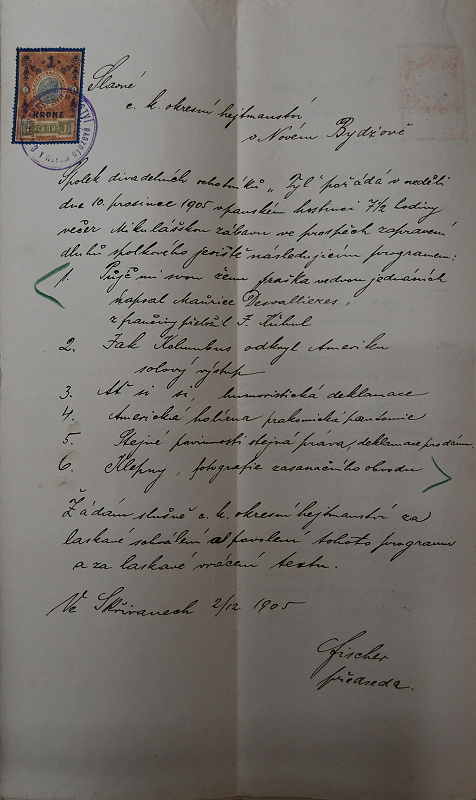 1
KRONE
1 1898 1
Slavné
c. k. okresní hejtmanství
v Novém Bydžově
Spolek divadelních ochotníků „Tyl“ pořádá v neděli
dne 10. prosince 1905 v panském hostinci 7 1/2 hodiny
večer Mikulášskou zábavu ve prospěch zapravení
dluhů spolkového jeviště následujícím programem:
1. Půjč mi svou ženu fraška ve dvou jednáních
napsal Maurice Desvallieres,
z franciny přeložil F.
2. Jak Kolumbus odkryl Ameriku
solový výstup
3. Ať si si, humoristická deklamace
4. Americká holírna prakomická pantomie
5. Stejné povinnosti stejná prava, deklamace pro dámu
6. Klepny, fotografie zasanačního obvodu
Žádám slušně c. k. okresní hejtmanství za
laskavé schválení a povolení tohoto programu
a za laskavé vrácení textu.
Ve Skřivanech 2/12 1905
Fischer
předseda.